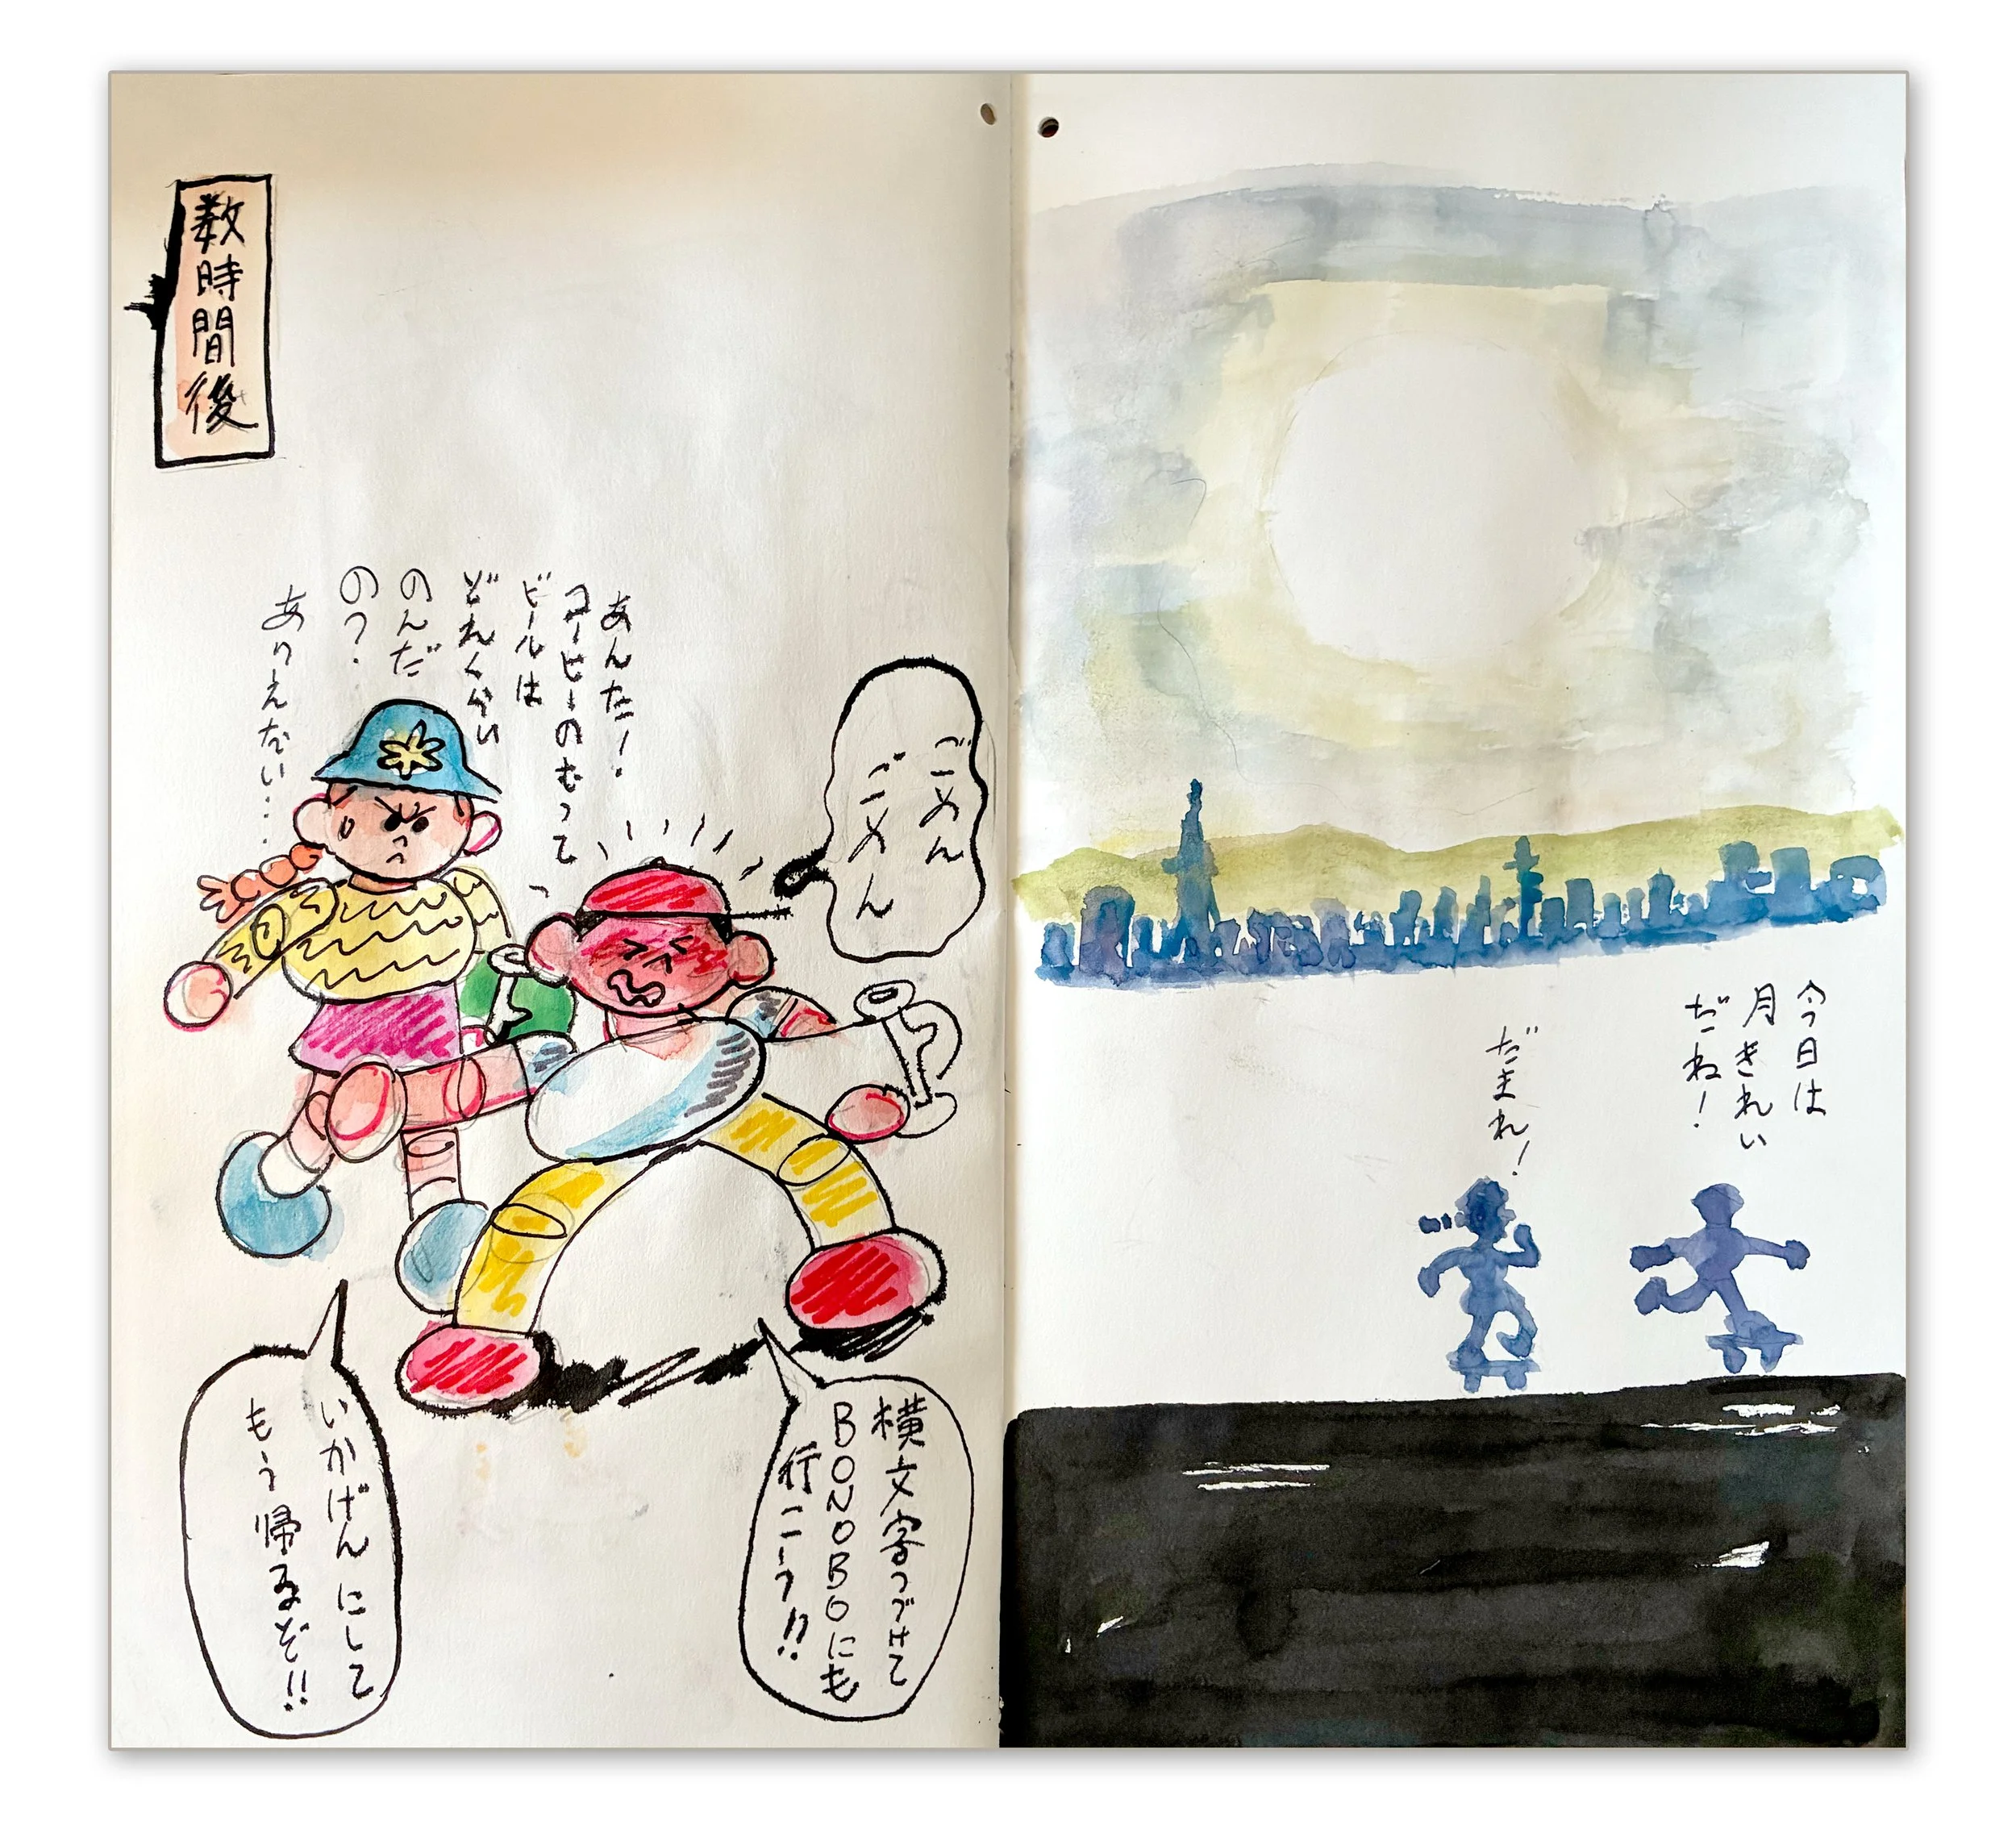 数時間後
あんた!
コーヒーのむって
ビールは
どれくらい
のんだ
の?
ありえない…
ごめん
ごめん
横文字つづけて
BONOBOにも
行こーう!!
いかげんにして
もう帰るぞ!!
今日は
月きれい
だね!
だまれ!